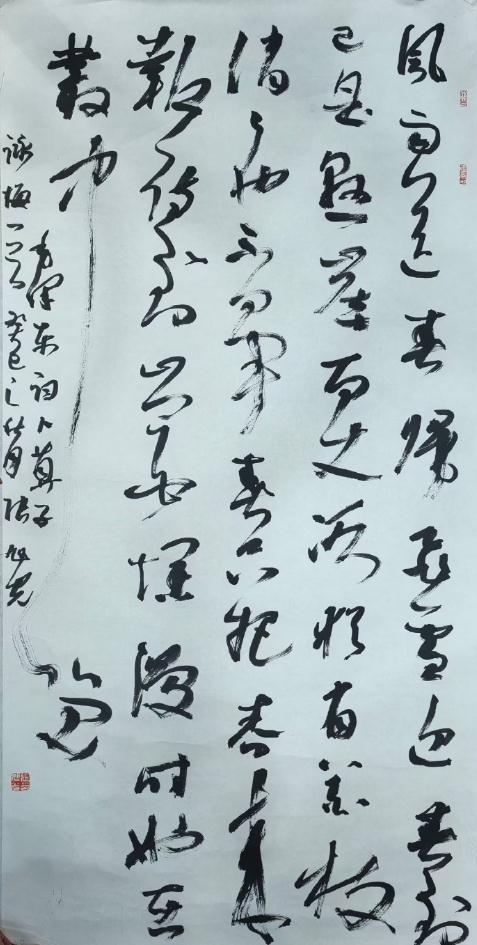 風雨送春歸飛雪迎春到
已是懸崖百丈冰猶有花枝
俏々也不争春只把春来
報待到山花爛漫時她在
叢中笑
毛澤东詞卜算子
詠梅一首癸巳之秋月張旭光